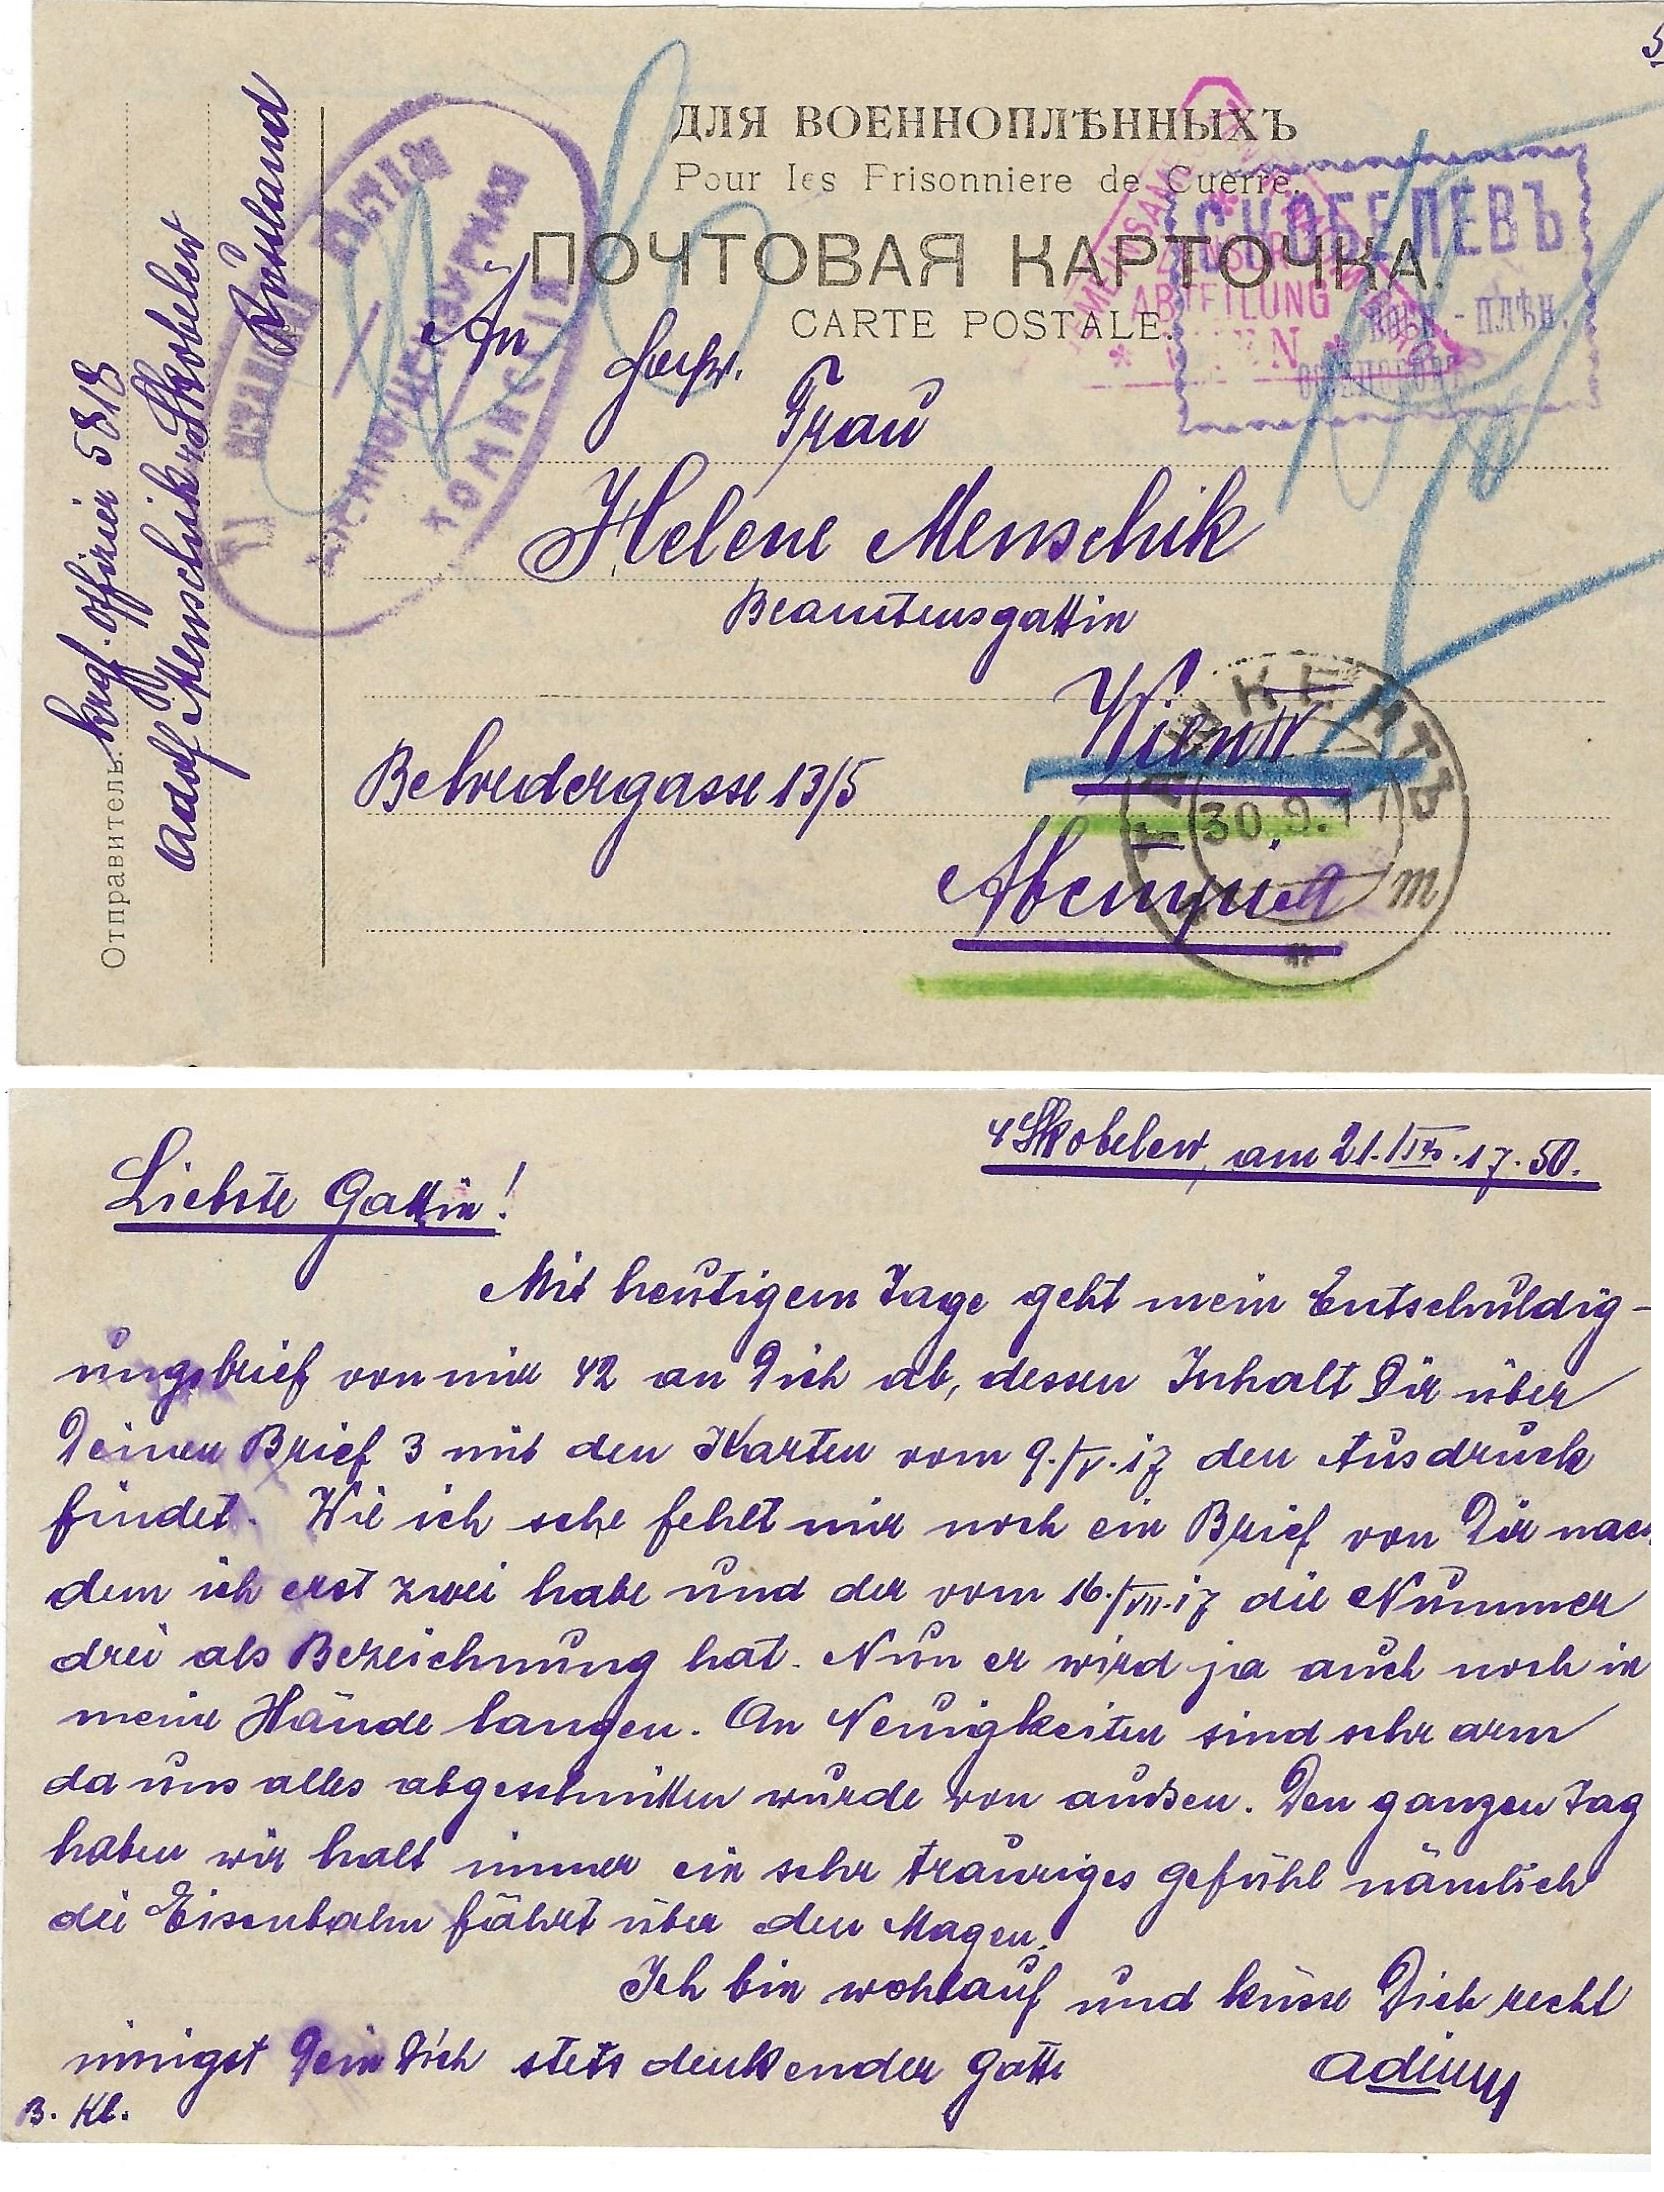 ДЛЯ ВОЕННОПЛѢННЫХЪ
Pour les Frisonniere de Cuerre.
ПОЧТОВАЯ КАРТОЧКА.
CARTE POSTALE.
СКОБЕЛЕВЪ
ВОЕН.-ПЛѢН.
ABTEILUNG
WIEN
ВОЕННО-ЦЕНЗУРНАЯ
КОМИСIЯ
Отправитель: krgf. Offizier 5818
Adolf Menschik Skobelew
Russland
An
Frau
Helene Menschik
Beamtensgattin
Wien IV
Belvedergasse 13/5
Австрия
ТАШКЕНТЪ
30.9.17
Skobelew, am 21./IX.17. 50.
Liebste Gattin!
Mit heutigem Tage geht mein Entschuldig-
ungsbrief von mir 42 an Dich ab, dessen Inhalt Dir über
Deinen Brief 3 mit den Karten vom 9./V.17 den Ausdruck
findet. Wie ich sehe fehlt mir noch ein Brief von Dir nach
dem ich erst zwei habe und der vom 16./VII.17 die Nummer
drei als Bezeichnung hat. Nun er wird ja auch noch in
meine Hände langen. An Neuigkeiten sind sehr arm
da uns alles abgeschnitten wurde von außen. Den ganzen Tag
haben wir halt immer ein sehr trauriges Gefühl nämlich
die Eisenbahn fährt über den Magen.
Ich bin wohlauf und küsse Dich recht
innigst Dein Dich stets denkender Gatte
B. Kl.